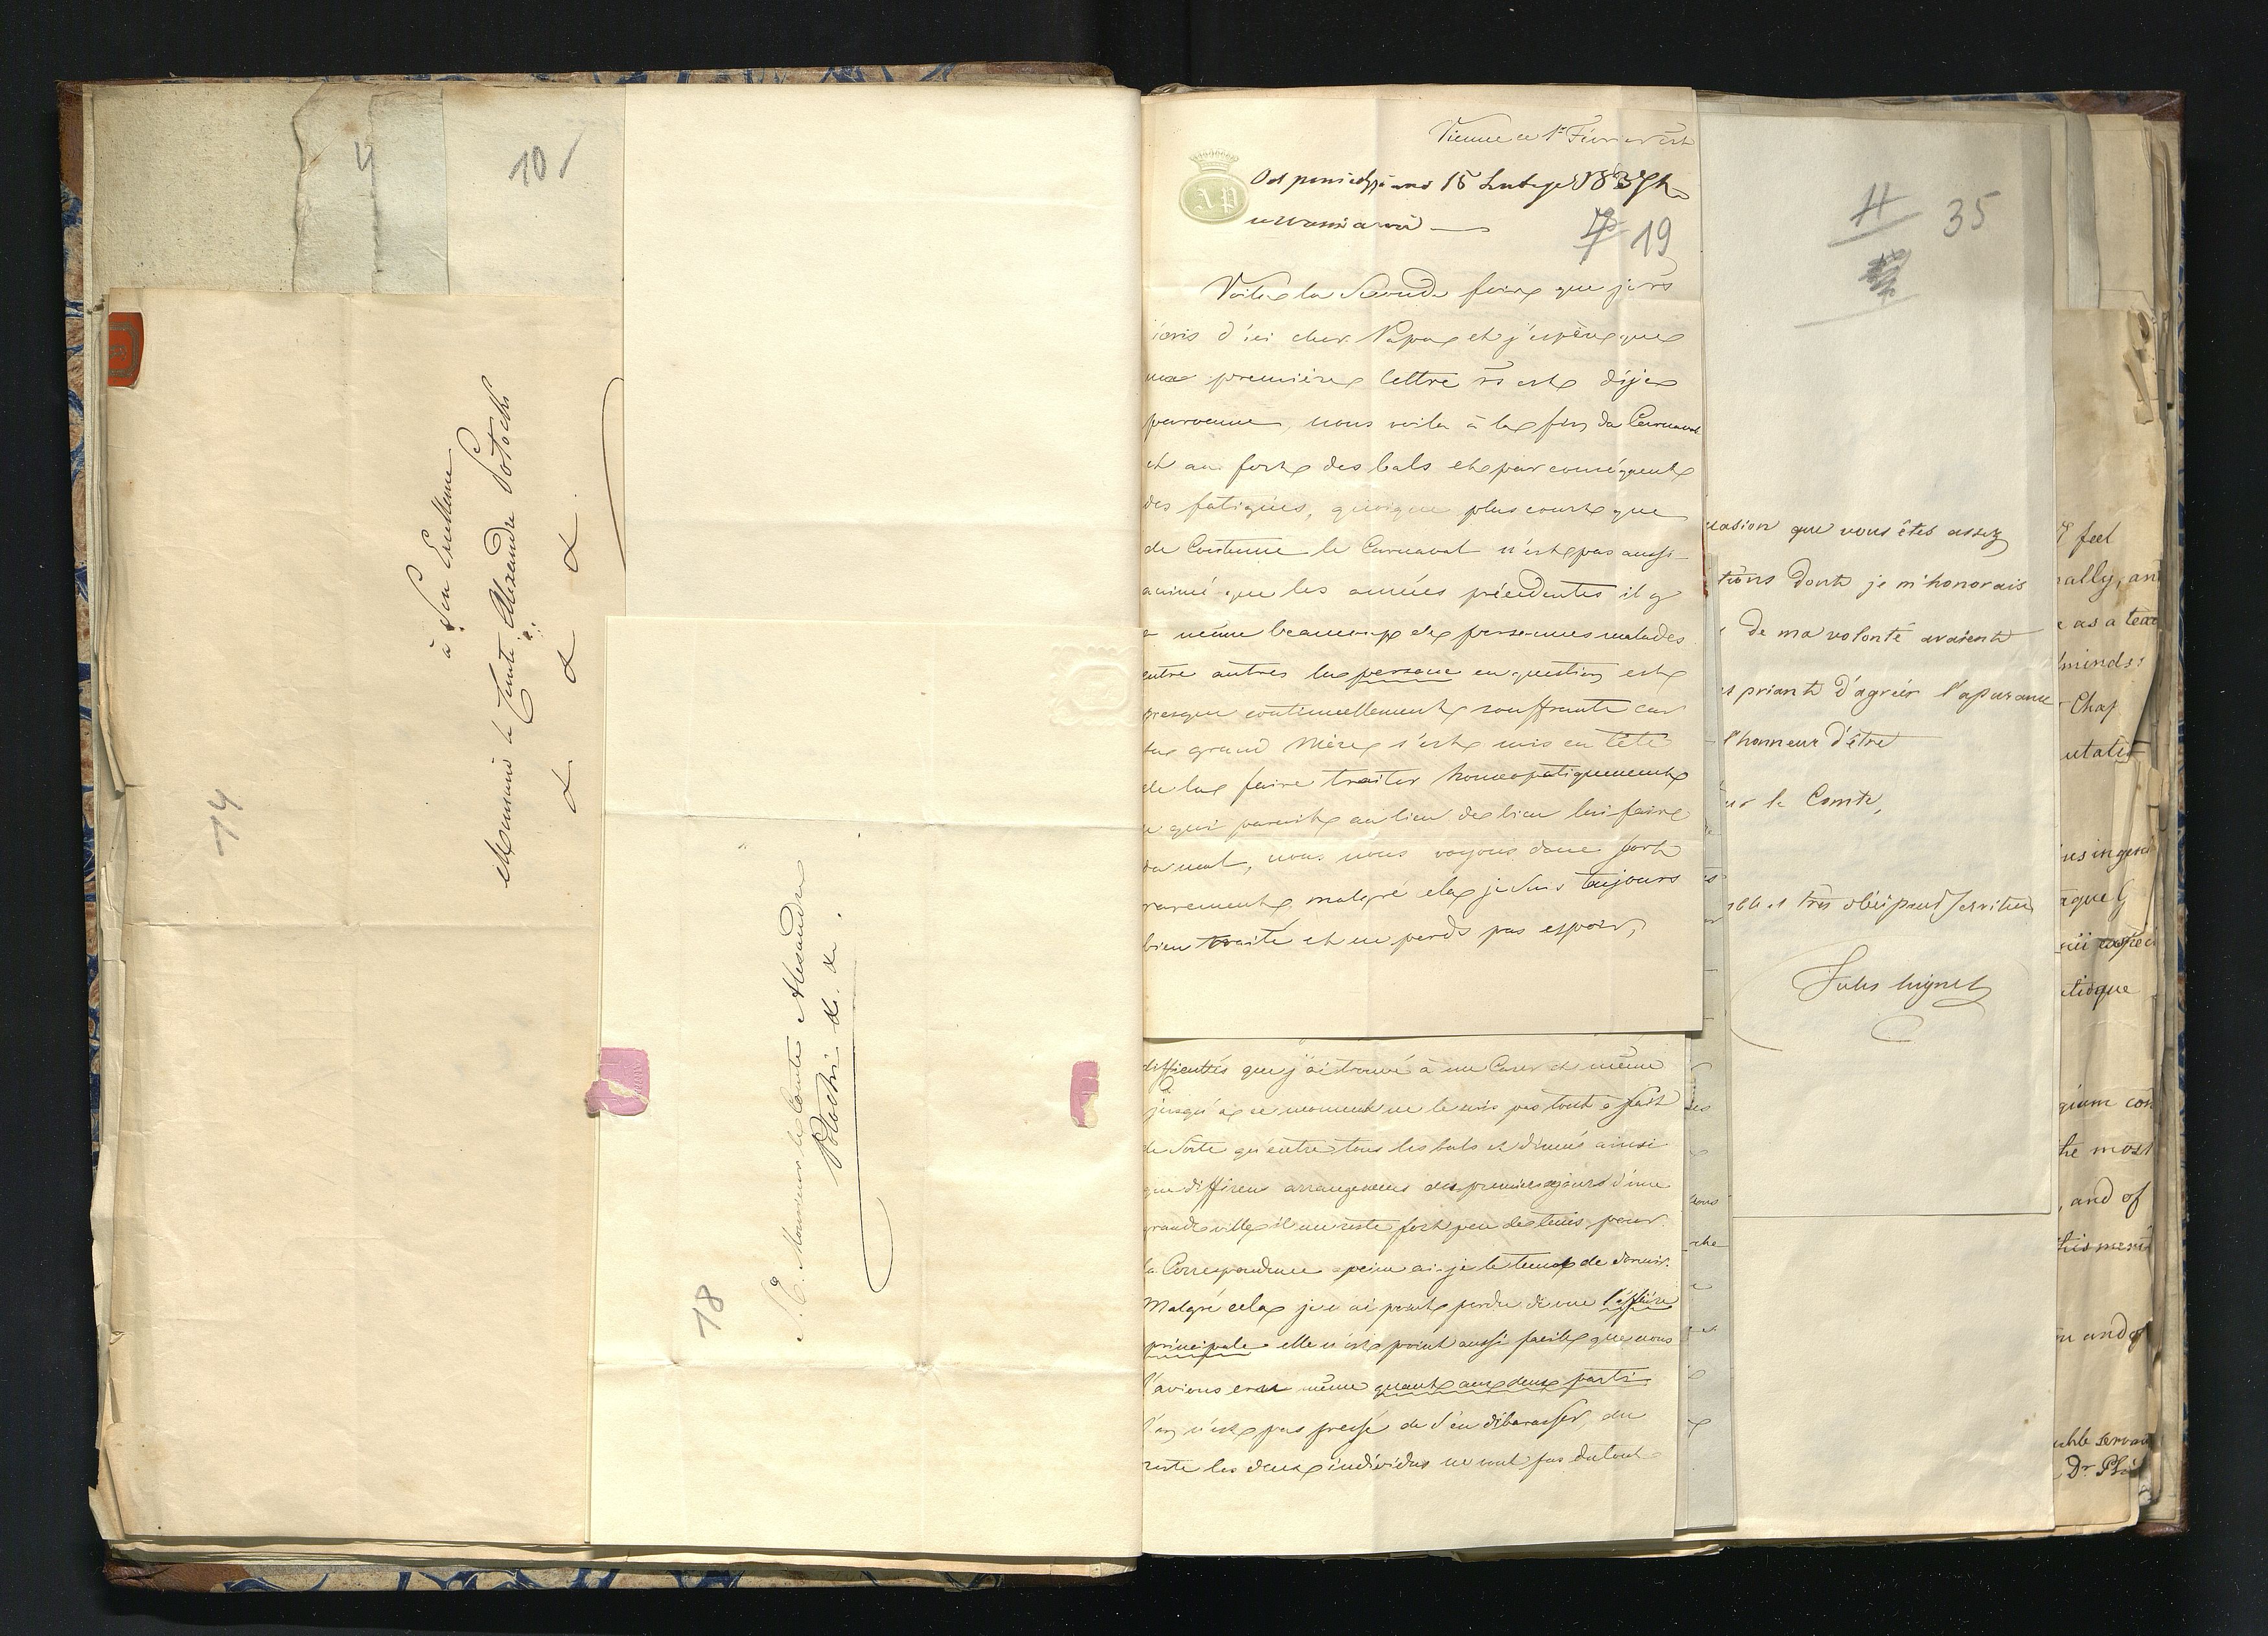 4
101
à Son Excellence
Monsieur le Comte Alexandre Potocki
& & &.
14
S. E. Monsieur le Comte Alexandre
Potocki &. &.
18
Vienne ce 1r
15 Lutego 1837
19
AP
Voila la seconde fois que je vs
écris d'ici cher Papa et j'espère que
ma première lettre vs est déja
parvenue, nous voila à la fin du Carnaval
et au fort des bals et par conséquent
des fatigues, quoique plus court que
de Coutume le Carnaval n'est pas aussi
animé que les années précédentes il y
a même beaucoup de personnes malades
entre autres la persone en question est
presque continuellement souffrante car
sa grand Mère s'est mis en tête
de la faire traiter homeopatiquement
ce qui parait au lieu de bien lui faire
du mal, nous nous voyons donc fort
rarement malgré cela je suis toujours
bien traité et ne perds pas espoir,
difficultés que j'ai trouvé à me Caser et même
jusqu'à ce moment ne le suis pas tout à fait
de sorte qu'entre tous les bals et dinés ainsi
que differens arrangemens des premiers jours d'une
grande ville il me reste fort peu de tems pour
la Correspondance a peine ai-je le temps de dormir.
Malgré cela je n'ai point perdu de vue l'affaire
principale elle n'est point aussi facile que nous
l'avions cru même quant aux deux parti
l'on n'est pas pressé de s'en débarasser, du
reste les deux individus ne vont pas du tout
H 35
casion que vous êtes assez
tions dont je m'honorais
de ma volonté avaient
s priant d'agréer l'assurance
l'honneur d'être
ur le Comte,
ble et très obéissant serviteur
Jules Mignet
feel
ally, an
e as a tea
minds:
Chap
utatis
atique
gium con
the most
, and of
this meri
n and of
mble servan
Dr. Phil